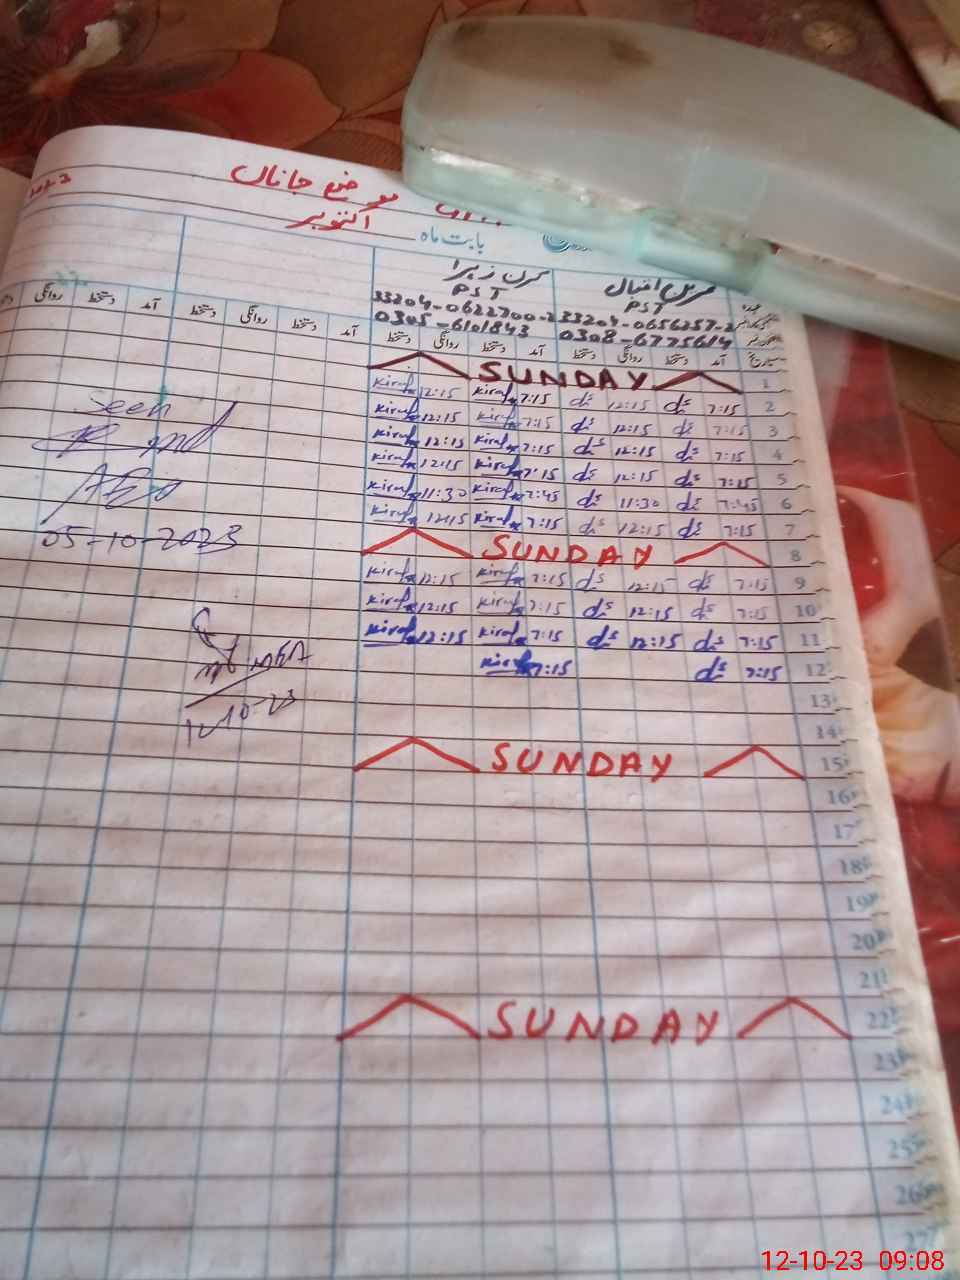 موضع جاناں
2023
بابت ماہ اکتوبر
کرن زہرا
PST PST
33204-0622700-2 33204-0656257-2
0305-6101843 0308-6775614
دستخط روانگی دستخط آمد دستخط روانگی دستخط آمد دستخط روانگی دستخط آمد تاریخ
SUNDAY 1
Kiran 12:15 Kiran 7:15 12:15 7:15 2
Kiran 12:15 Kiran 7:15 12:15 7:15 3
Kiran 12:15 Kiran 7:15 12:15 7:15 4
Kiran 12:15 Kiran 7:15 12:15 7:15 5
Kiran 11:30 Kiran 7:45 11:30 7:45 6
Kiran 12:15 Kiran 7:15 12:15 7:15 7
SUNDAY 8
Kiran 12:15 Kiran 7:15 12:15 7:15 9
Kiran 12:15 Kiran 7:15 12:15 7:15 10
Kiran 12:15 Kiran 7:15 12:15 7:15 11
Kiran 7:15 7:15 12
13
14
SUNDAY 15
16
17
18
19
20
21
SUNDAY 22
23
24
25
26
27
Seen
05-10-2023
12-10-23
12-10-23 09:08